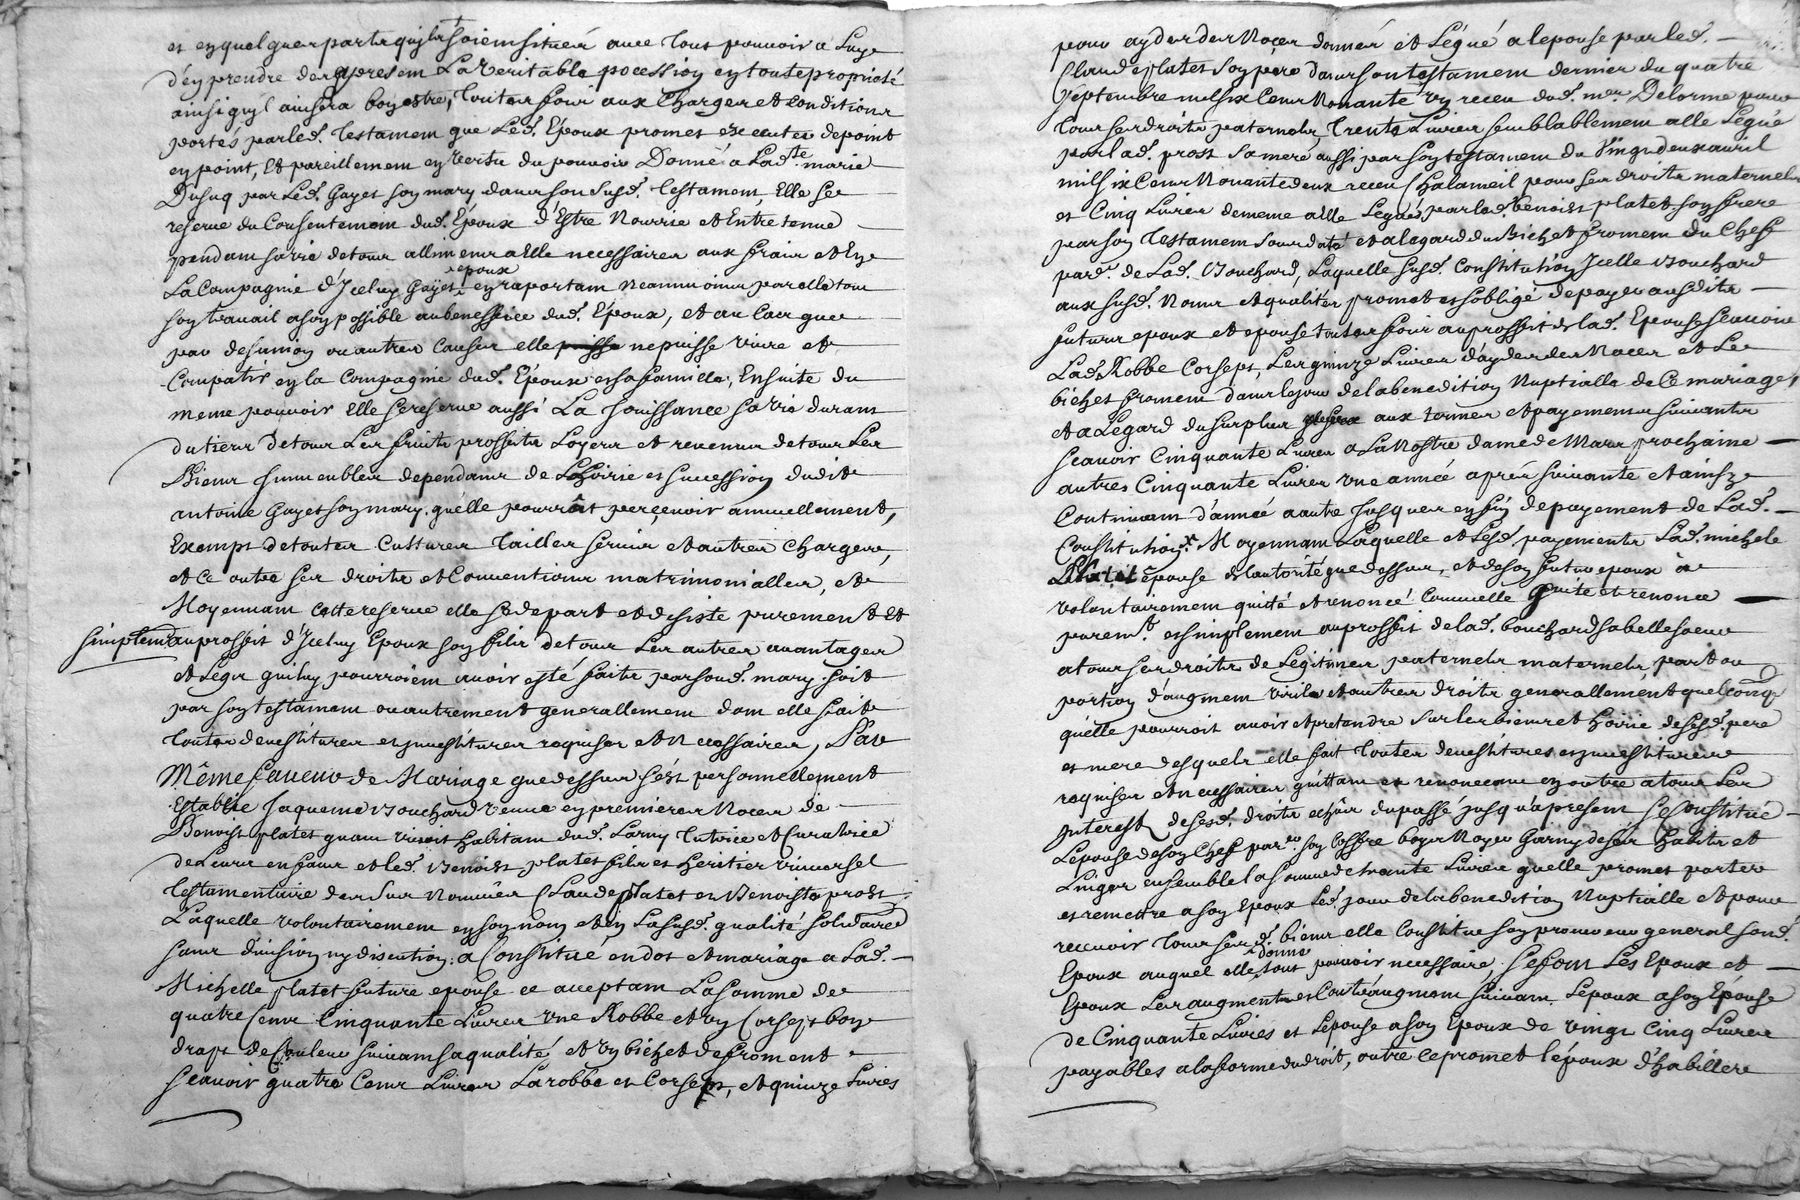 et en quelques parts quils soient situés avec tout pouvoir a luy
d'en prendre des apresent La veritable pocession en toute proprieté
ainsi quil avisera bon estre, toutes fois aux charges et conditions
portés par led. Testament que Led. Epoux promet executer de point
en point, Et pareillement en vertu du pouvoir Donné a Lad.te marie
Dusuq par Led. Gayet son mary dans son susd. Testament, Elle se
reserve du Consentement dud. Epoux d'Estre Nourrie et Entretenue
pendant sa vie de tous allimens a Elle necessaires aux frais et En
La Compagnie d'Iceluy Gayet epoux en raportant neanmoins par elle tout
son travail a son possible au beneffice dud. Epoux, et au cas que
par desunion ou autres causes elle ne puisse vivre et
Compatir en la Compagnie dud. Epoux et sa famille, Ensuite du
meme pouvoir Elle se reserve aussi La Jouissance sa vie durant
du tiers de tous Les fruits proffits Loyers et revenus de tous Les
Biens immeubles dependans de L'hoirie et succession dudit
antoine Gayet son mary, qu'elle pourrat perçevoir annuellement,
Exempt de toutes Cultures tailles servis et autres charges,
et ce outre ses droits et Conventions matrimonialles, et
Moyennant cette reserve elle se depart et desiste purement et
simplem.t au proffit d'Iceluy Epoux son fils de tous Les autres avantages
et Legs qui luy pourroient avoir esté faits par sond. mary soit
par son testament ou autrement generallement dont elle fait
toutes devestitures et investitures requises et necessaires, Par
Même faveur de Mariage que dessus s'est personnellement
Establie Jaqueme Bouchard veuve en premieres Noces de
Benoist platet quant vivoit habitant dud. Larny tutrice et Curatrice
de Leurs enfans et led. Benoist platet fils et heritier universel
Testamentaire des sus Nommés Claude platet et Benoiste prost
Laquelle volontairement en son nom et en La susd. qualité solidaire
sans division ny discution; a Constitué en dot et mariage a Lad.
Michelle platet future epouse ce acceptant La somme de
quatre Cent Cinquante Livres une Robbe et un Corset bon
drapt de Couleur suivant sa qualité et un bichet de froment
scavoir quatre Cent Livres La robbe et Corsept, et quinze Livres
pour ayder des Noces donnés et Légué a lepouse par led.
Claude platet son pere dans son testament dernier du quatre
septembre mil six Cent Nonante un receu dud. m.e Delorme pour
tous ses droits paternels, Trente Livres semblablement a elle Légué
par lad. prost sa mere aussi par son testament du vingt deux avril
mil six Cent Nonante deux receu Chalameil pour ses droits maternels
et Cinq Livres de meme a elle Legués par led. benoist platet son frere
par son Testament sous daté et a legard du Bichet froment du Chef
par.er de Lad. Bouchard, Laquelle susd. Constitution Icelle Bouchard
aux susd. Noms et qualités promet et s'obligé de payer ausdits
futurs epoux et epouse toutes fois au proffit de lad. Epouse scavoir
Lad. Robbe Corsept, Les quinze Livres d'ayder des Noces et Le
bichet froment dans le jour de la benedition Nuptialle de Ce mariage,
et a Légard du surplus aux termes et payements suivants
scavoir Cinquante Livres a La Nostre dame de Mars prochaine
autres Cinquante Livres une année aprés suivante et ainsy
Continuant d'année a autre Jusques en fin de payement de Lad.
Constitution x Moyennant Laquelle et Lesd. payements Lad. michele
Platet epouse de lautorité que dessus, et de son futur epoux a
volontairement quitté et renoncé Comme elle quite et renonce
purem.t et simplement au proffit de lad. bouchard sa belle soeur
a tous ses droits de Legitimes paternels maternels part ou
portion d'augment virile et autres droits generallement quelconq.
qu'elle pourroit avoir et pretandre sur les biens et hoirie desesd. pere
et mere desquels elle fait toutes devestitures et investitures
requises et necessaires quittant et renoncant en outre a tous Les
Interest desesd. droits echûs du passé jusqu'a present se Constitué
Lepouse de son Chef par.er son Coffre bois Noyer Garny deses habits et
Linges ensemble la somme de trante Livres quelle promet porter
et remettre a son Epoux Led. jour de la benedition Nuptialle et pour
recevoir tous sesd. biens elle Constitue son procureur general sond.
Epoux auquel elle donne tout pouvoir necessaire, se font Les Epoux et
Epoux Les augments et Contraugment suivant Lepoux a son Epouse
de Cinquante Livres et Lepouse a son Epoux de vingt Cinq Livres
payables a la forme du droit, outre ce promet l'époux d'habillere